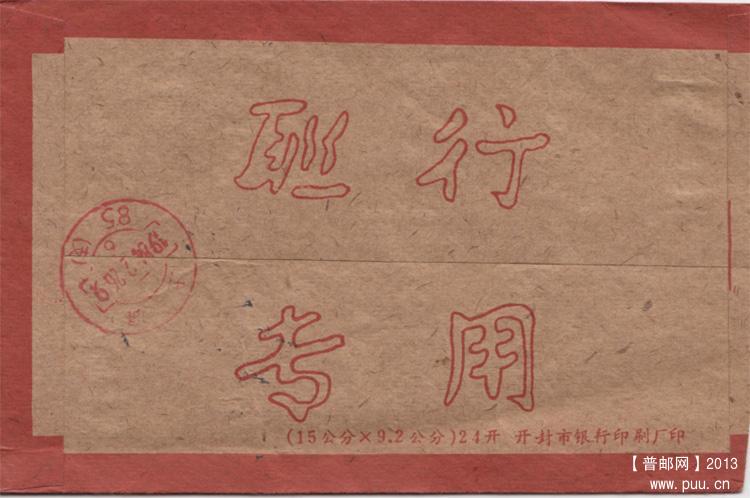 联行
专用
85
(15公分×9.2公分)24开 开封市银行印刷厂印
【普邮网】2013
www.puu.cn